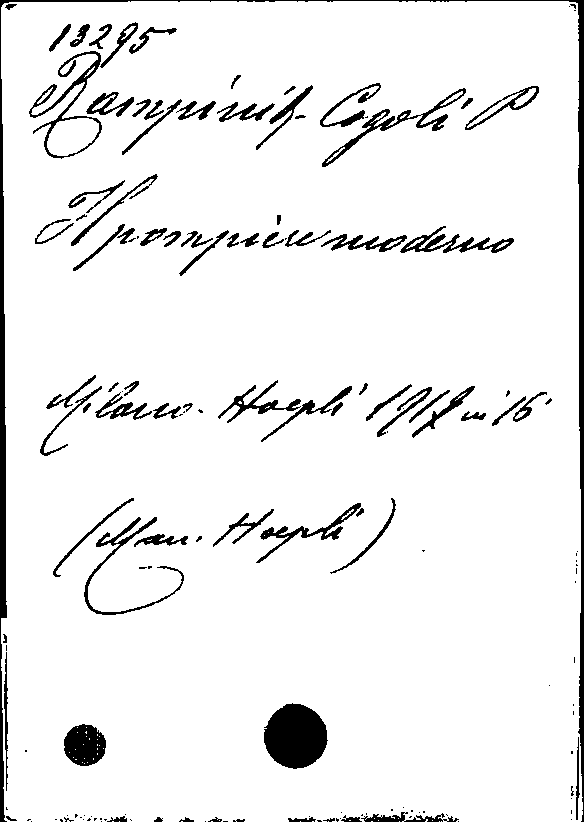 13295
Cogoli P
Il pompiere moderno
Milano. Hoepli in 16°
(Man. Hoepli)